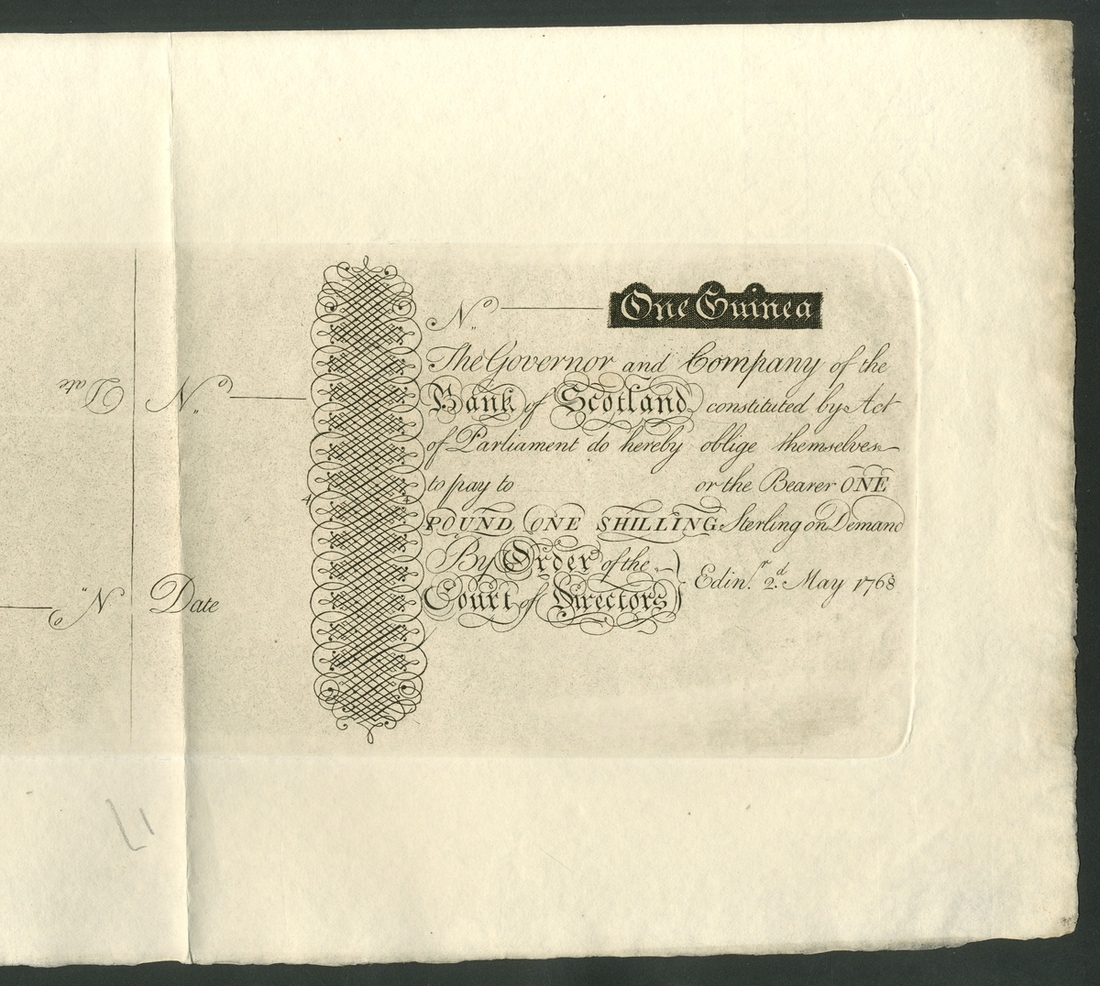 No.
One Guinea
The Governor and Company of the
Bank of Scotland constituted by Act
of Parliament do hereby oblige themselves
to pay to or the Bearer ONE
POUND ONE SHILLING Sterling on Demand
By Order of the
Court of Directors
Edinr. 2d. May 1768
No.
Date
Date
No.
4
17